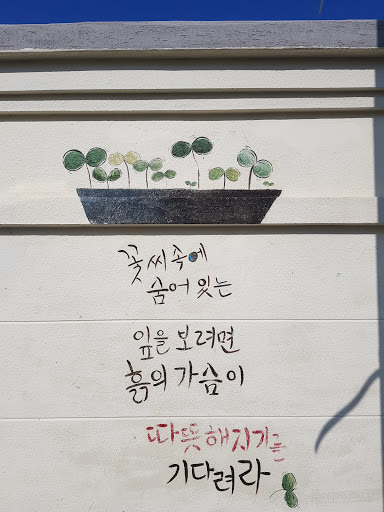 꽃씨속에
숨어있는
잎을 보려면
흙의 가슴이
따뜻해지기를
기다려라